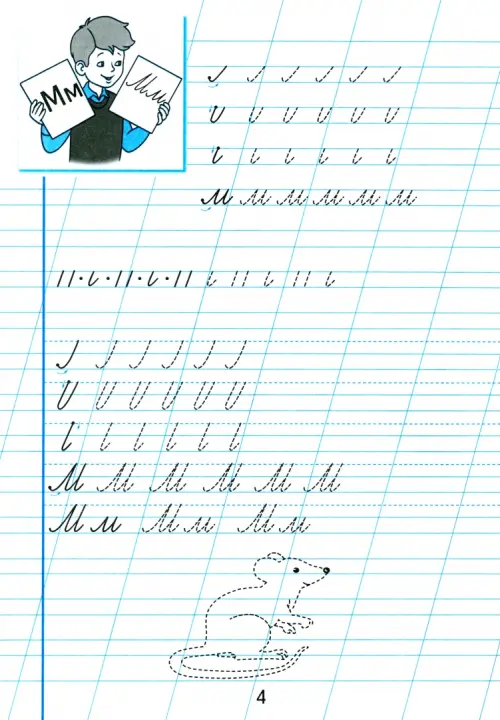 Мм Мм
м м м м м м
М М М М М М
Мм Мм Мм
4